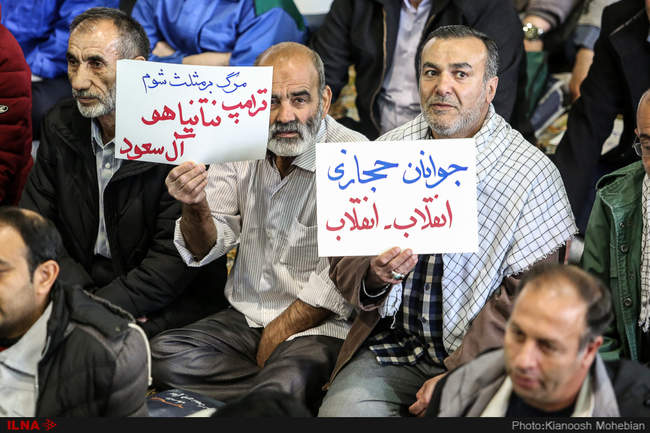 مرگ بر مثلث شوم
ترامپ
نتانیاهو
آل سعود
جوانان حجازی
انقلاب - انقلاب
ILNA
Photo:Kianoosh Mohebian